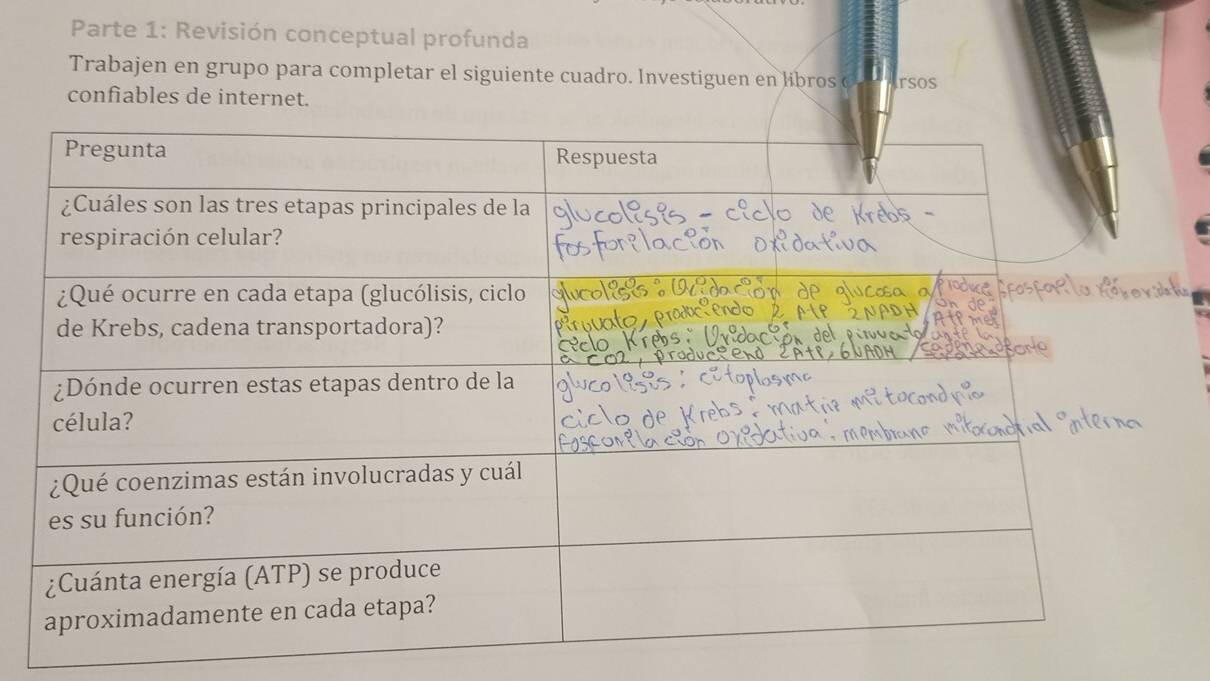 Parte 1: Revisión conceptual profunda
Trabajen en grupo para completar el siguiente cuadro. Investiguen en libros rsos
confiables de internet.
Pregunta
Respuesta
¿Cuáles son las tres etapas principales de la
respiración celular?
glucolisis - ciclo de Krebs -
fosforilación oxidativa
¿Qué ocurre en cada etapa (glucólisis, ciclo
de Krebs, cadena transportadora)?
glucolisis: Oxidación de glucosa a
piruvato, produciendo 2 ATP 2NADH
ciclo Krebs: Oxidación del piruvato
a CO2, produciend 2ATP, 6NADH
produce
on de
ATP me
¿Dónde ocurren estas etapas dentro de la
célula?
glucolisis: citoplasma
ciclo de Krebs: matriz mitocondria
fosforilación oxidativa: membrana mitocondrial interna
¿Qué coenzimas están involucradas y cuál
es su función?
¿Cuánta energía (ATP) se produce
aproximadamente en cada etapa?